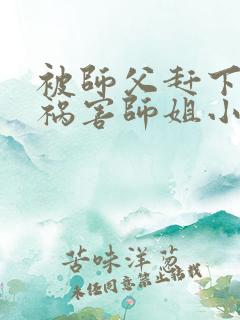 被師父赶下
祸害師姐小
苦味洋葱
未经同意禁止转载